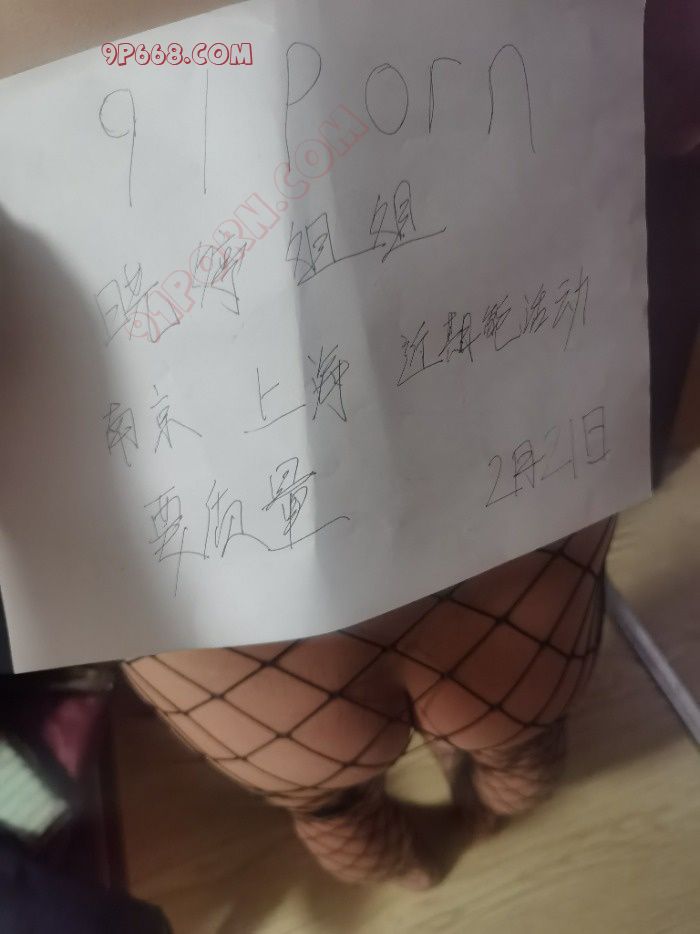 9P668.COM
91 Porn
91PORN.COM
晓婷姐姐
南京 上海 近期能活动
要质量 2月21日